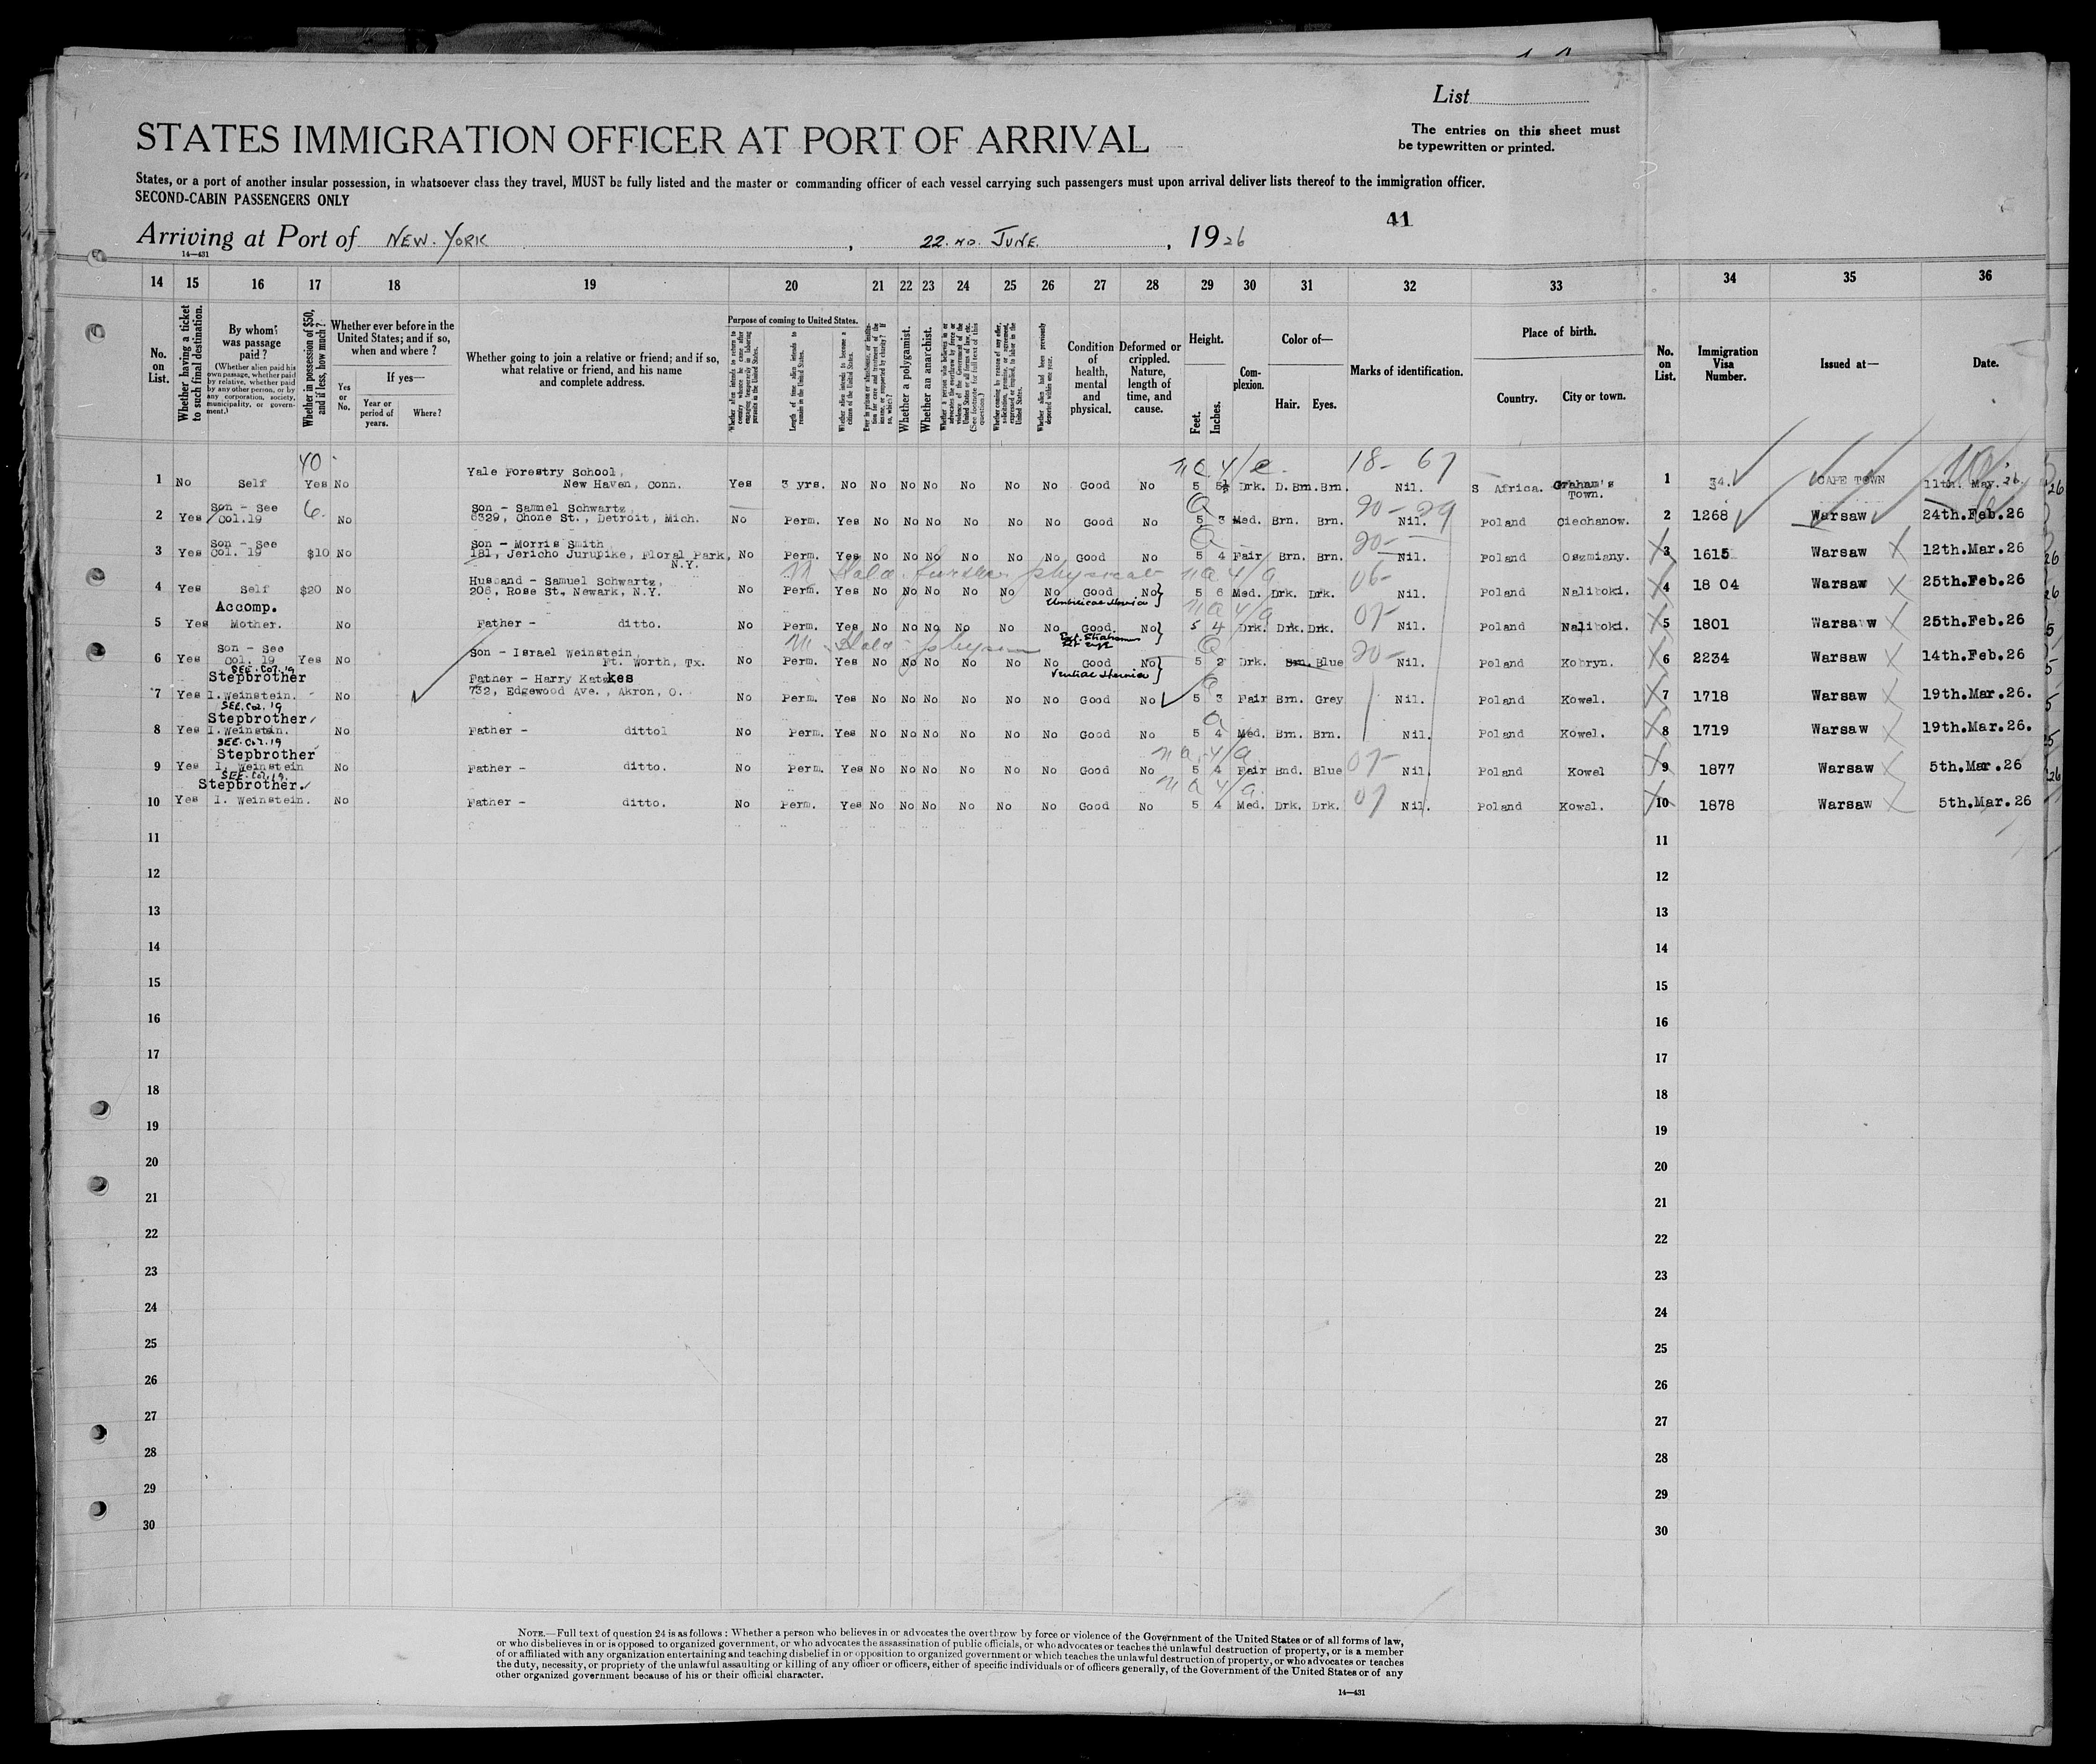 List
STATES IMMIGRATION OFFICER AT PORT OF ARRIVAL
The entries on this sheet must
be typewritten or printed.
States, or a port of another insular possession, in whatsoever class they travel, MUST be fully listed and the master or commanding officer of each vessel carrying such passengers must upon arrival deliver lists thereof to the immigration officer.
SECOND-CABIN PASSENGERS ONLY
41
Arriving at Port of NEW. YORK, 22. ND. JUNE., 1926
14—431
14 15 16 17 18 19 20 21 22 23 24 25 26 27 28 29 30 31 32 33 34 35 36
No. on List.
Whether having a ticket to such final destination.
By whom was passage paid?
(Whether alien paid his own passage, whether paid by relative, whether paid by any other person, or by any corporation, society, municipality, or government.)
Whether in possession of $50, and if less, how much?
Whether ever before in the United States; and if so, when and where?
Yes or No.
If yes—
Year or period of years.
Where?
Whether going to join a relative or friend; and if so, what relative or friend, and his name and complete address.
Purpose of coming to United States.
Length of time alien intends to remain in the United States.
Whether alien intends to become a citizen of the United States.
Whether a polygamist.
Whether an anarchist.
Condition of health, mental and physical.
Deformed or crippled. Nature, length of time, and cause.
Height.
Feet. Inches.
Complexion.
Color of—
Hair. Eyes.
Marks of identification.
Place of birth.
Country. City or town.
No. on List.
Immigration Visa Number.
Issued at—
Date.
40 18- 67
1 No Self Yes No Yale Forestry School, New Haven, Conn. Yes 3 yrs. No No No No No No No Good No 5 Drk. D.Brn. Brn. Nil. S Africa. Graham's Town. 1 34. CAPE TOWN 11th. May. 26
2 Yes Son - See Col.19 6. No Son - Samuel Schwartz, 6329, Chone St., Detroit, Mich. No Perm. Yes No No No No No No Good No 5 3 Med. Brn. Brn. Nil. Poland Ciechanow. 2 1268 Warsaw 24th.Feb.26
3 Yes Son - See Col. 19 $10 No Son - Morris Smith, 181, Jericho Jurupike, Floral Park, N.Y. No Perm. Yes No No No No No No Good No 5 4 Fair Brn. Brn. Nil. Poland Oszmiany. 3 1615 Warsaw 12th.Mar.26
Hold further physical
4 Yes Self $20 No Husband - Samuel Schwartz, 206, Rose St., Newark, N.Y. No Perm. Yes No No No No No No Good No 5 6 Med. Drk. Drk. Nil. Poland Naliboki. 4 18 04 Warsaw 25th.Feb.26
Umbilical Hernia
5 Yes Accomp. Mother. No Father - ditto. No Perm. Yes No No No No No No Good. No 5 4 Drk. Drk. Drk. Nil. Poland Naliboki. 5 1801 Warsaw 25th.Feb.26
Hold
6 Yes Son - See Col. 19 Yes No Son - Israel Weinstein, Ft. Worth, Tx. No Perm. Yes No No No No No No Good No 5 2 Drk. Brn. Blue Nil. Poland Kobryn. 6 2234 Warsaw 14th.Feb.26
SEE. Col. 19
7 Yes Stepbrother I. Weinstein. No Father - Harry Katzkes 732, Edgewood Ave., Akron, O. No Perm. Yes No No No No No No Good No 5 3 Fair Brn. Grey Nil. Poland Kowel. 7 1718 Warsaw 19th.Mar.26.
SEE. Col. 19
8 Yes Stepbrother I. Weinstein. No Father - dittol No Perm. Yes No No No No No No Good No 5 4 Med. Brn. Brn. Nil. Poland Kowel. 8 1719 Warsaw 19th.Mar.26.
SEE. Col. 19
9 Yes Stepbrother I. Weinstein No Father - ditto. No Perm. Yes No No No No No No Good No 5 4 Fair Bnd. Blue Nil. Poland Kowel 9 1877 Warsaw 5th.Mar.26
SEE. Col. 19.
10 Yes Stepbrother. I. Weinstein. No Father - ditto. No Perm. Yes No No No No No No Good No 5 4 Med. Drk. Drk. Nil. Poland Kowel. 10 1878 Warsaw 5th.Mar.26
11 11
12 12
13 13
14 14
15 15
16 16
17 17
18 18
19 19
20 20
21 21
22 22
23 23
24 24
25 25
26 26
27 27
28 28
29 29
30 30
NOTE.—Full text of question 24 is as follows: Whether a person who believes in or advocates the overthrow by force or violence of the Government of the United States or of all forms of law,
or who disbelieves in or is opposed to organized government, or who advocates the assassination of public officials, or who advocates or teaches the unlawful destruction of property, or is a member
of or affiliated with any organization entertaining and teaching disbelief in or opposition to organized government or which teaches the unlawful destruction of property, or who advocates or teaches
the duty, necessity, or propriety of the unlawful assaulting or killing of any officer or officers, either of specific individuals or of officers generally, of the Government of the United States or of any
other organized government because of his or their official character.
14—431